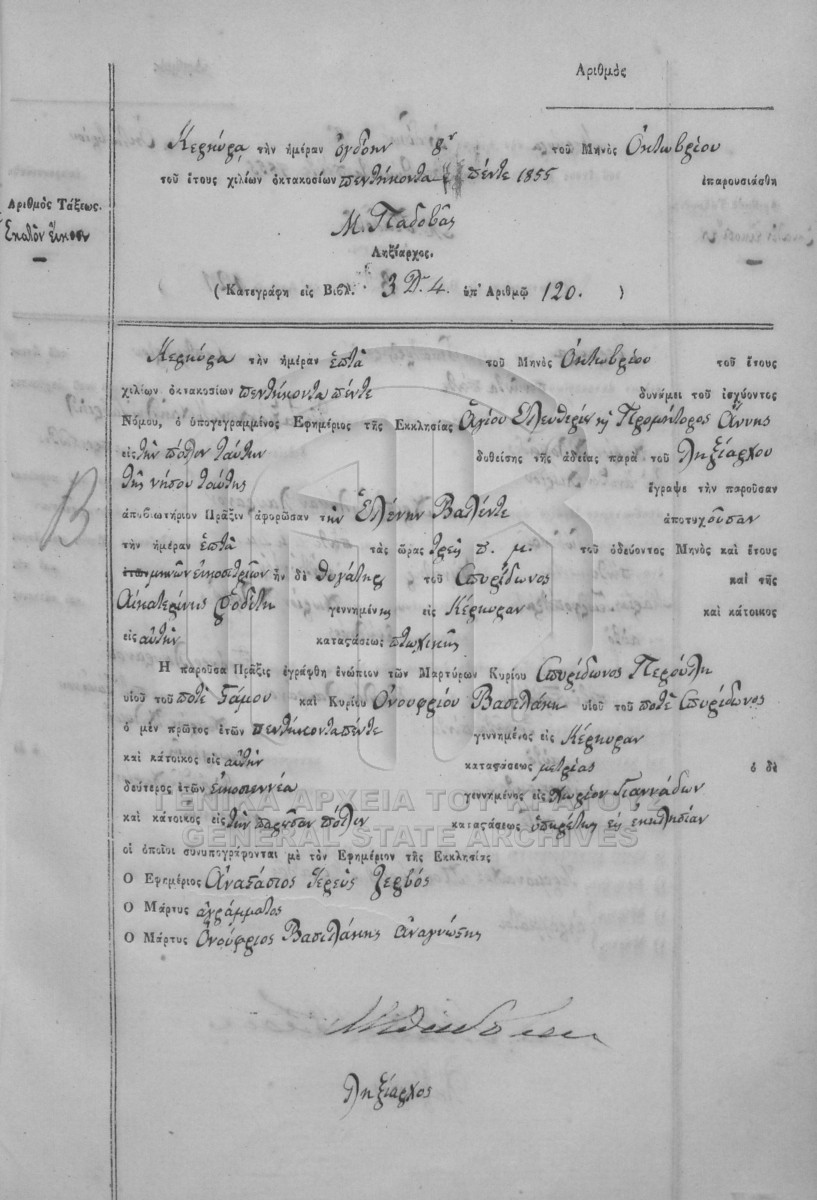 Αριθμός
Κερκύρα τὴν ἡμέραν ὀγδόην 8η τοῦ Μηνὸς Ὀκτωβρίου
τοῦ ἔτους χιλίων ὀκτακοσίων πενθήκοντα πέντε 1855 ἐπαρουσιάσθη
Ἀριθμὸς Τάξεως.
Ἑκατὸν εἴκοσι
Μ. Παδοβᾶς
Ληξίαρχος.
(Κατεγράφη εἰς Βιβλ. 3 Dn 4. ὑπ' Ἀριθμῷ 120. )
Κερκύρα τὴν ἡμέραν ἑπτὰ τοῦ Μηνὸς Ὀκτωβρίου τοῦ ἔτους
χιλίων ὀκτακοσίων πενθήκοντα πέντε δυνάμει τοῦ ἰσχύοντος
Νόμου, ὁ ὑπογεγραμμένος Ἐφημέριος τῆς Ἐκκλησίας Ἁγίου Ἐλευθερίου καὶ Προμήτορος Ἄννης
εἰς τὴν πόλιν ταύτην δοθείσης τῆς ἀδείας παρὰ τοῦ Ληξιάρχου
τῆς νήσου ταύτης ἔγραψε τὴν παροῦσαν
ἀποβιωτήριον Πρᾶξιν ἀφορῶσαν τὴν Ἑλένην Βαλέντε ἀποτυχοῦσαν
Β
τὴν ἡμέραν ἑπτὰ τὰς ὥρας τρεῖς π. μ. τοῦ ὁδεύοντος Μηνὸς καὶ ἔτους
ἐτῶν μηνῶν εἰκοσιτριῶν ἦν δὲ θυγάτηρ τοῦ Σπυρίδωνος καὶ τῆς
Αἰκατερίνης γεννημένη εἰς Κέρκυραν καὶ κάτοικος
εἰς αὐτὴν καταστάσεως πτωχικῆς
Ἡ παροῦσα Πρᾶξις ἐγράφθη ἐνώπιον τῶν Μαρτύρων Κυρίου Σπυρίδωνος Περούλη
υἱοῦ τοῦ ποτὲ Σάμου καὶ Κυρίου Ὀνουφρίου Βασιλάκη υἱοῦ τοῦ ποτὲ Σπυρίδωνος
ὁ μὲν πρῶτος ἐτῶν πενθήκοντα πέντε γεννημένος εἰς Κέρκυραν
καὶ κάτοικος εἰς αὐτὴν καταστάσεως μετρίας ὁ δὲ
δεύτερος ἐτῶν εἰκοσιεννέα γεννημένος εἰς Χωρίον Γιαννάδων
ΓΕΝΙΚΑ ΑΡΧΕΙΑ ΤΟΥ ΚΡΑΤΟΥΣ
καὶ κάτοικος εἰς τὴν παροῦσαν πόλιν καταστάσεως ὑπηρέτης εἰς ἐκκλησίαν
GENERAL STATE ARCHIVES
οἱ ὁποῖοι συνυπογράφονται μὲ τὸν Ἐφημέριον τῆς Ἐκκλησίας
Ὁ Ἐφημέριος Ἀναστάσιος Ἱερεὺς Ζερβός
Ὁ Μάρτυς ἀγράμματος
Ὁ Μάρτυς Ὀνούφριος Βασιλάκης Ἀναγνώστης
Ληξίαρχος